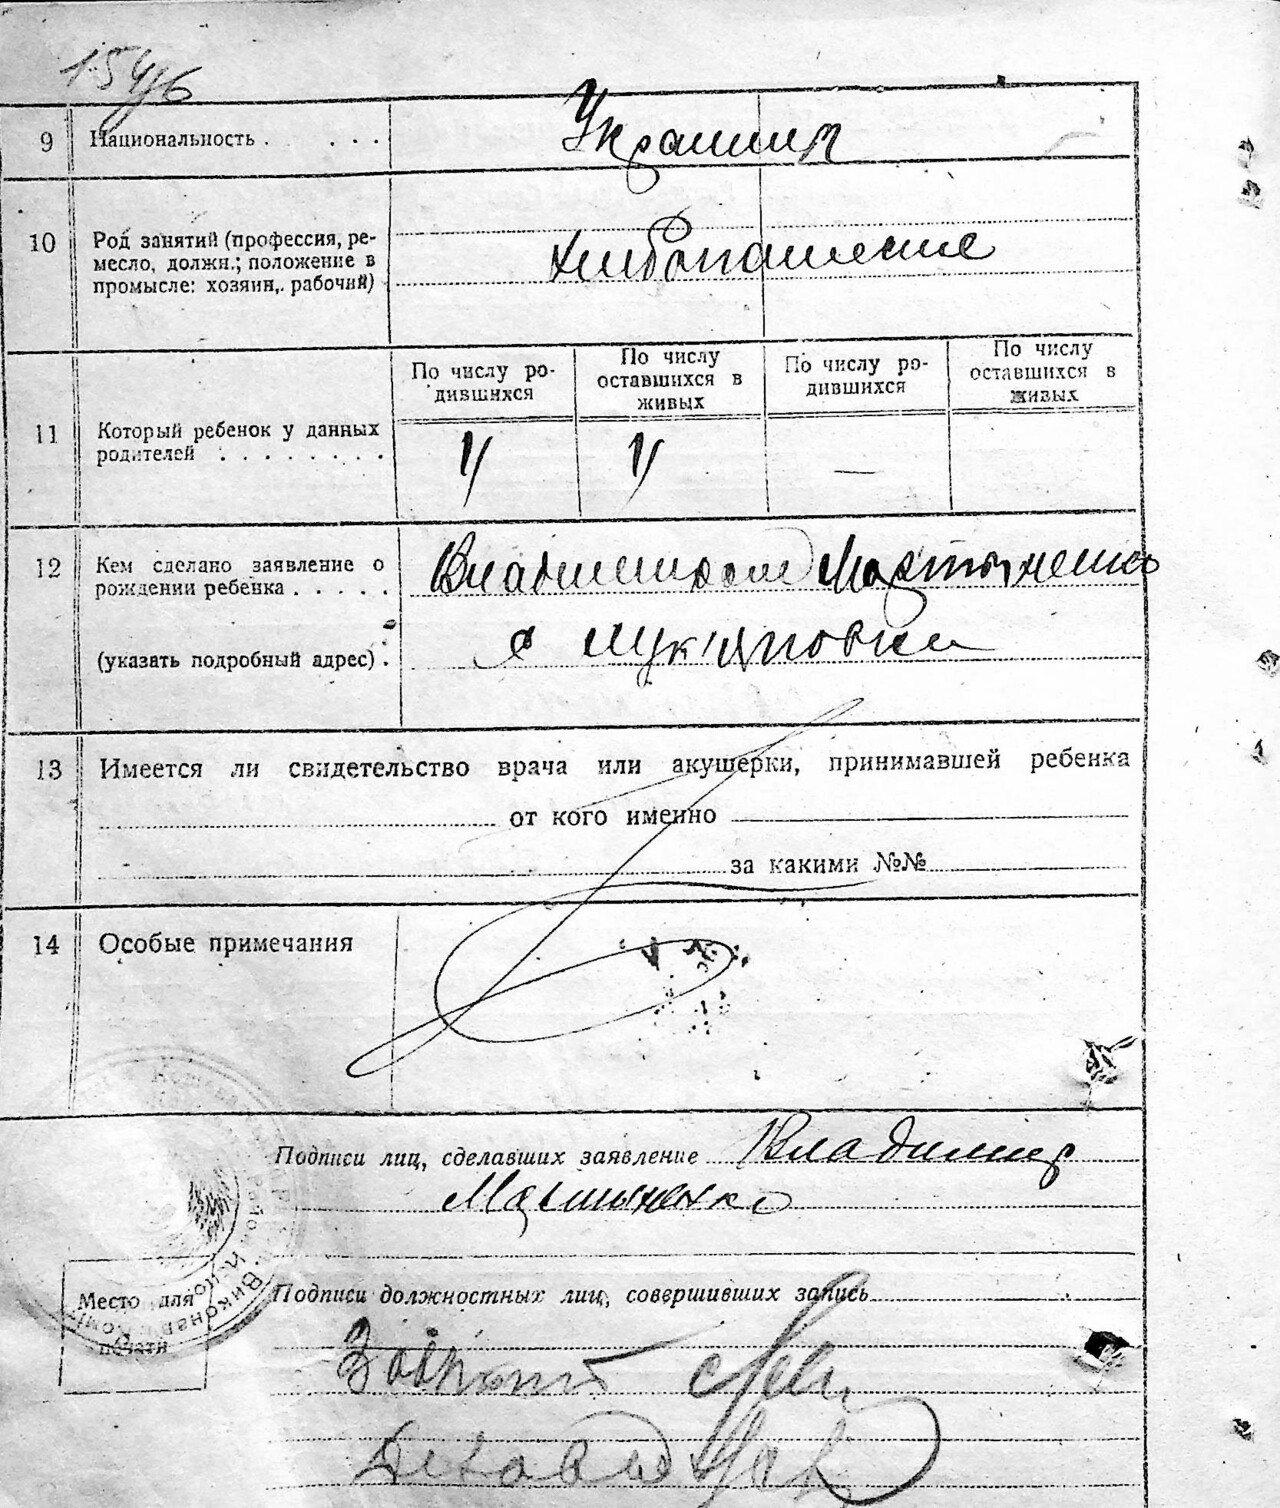 154/6
9 Национальность . . . . Украинц
10 Род занятий (профессия, ре-
месло, должн.; положение в
промысле: хозяин, рабочий)
хлибопашение
По числу ро-
дившихся
По числу
оставшихся в
живых
По числу ро-
дившихся
По числу
оставшихся в
живых
11 Который ребенок у данных
родителей . . . . . . . .
—
12 Кем сделано заявление о
рождении ребенка . . . . .
Владимиром Мартыненко
(указать подробный адрес) .
с Лук'яновки
13 Имеется ли свидетельство врача или акушерки, принимавшей ребенка
от кого именно
за какими №№
14 Особые примечания
Подписи лиц, сделавших заявление Владимир
Мартыненко
Место для
печати
Подписи должностных лиц, совершивших запись